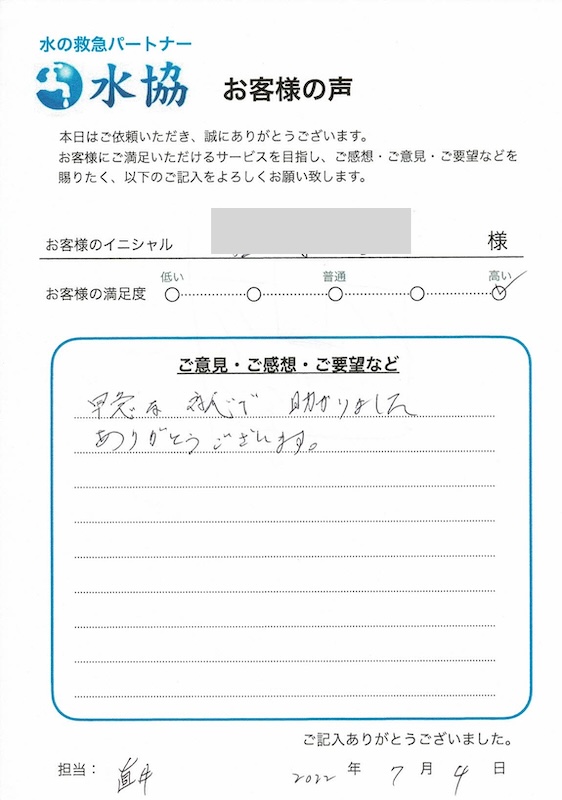 水の救急パートナー
水協 お客様の声
本日はご依頼いただき、誠にありがとうございます。
お客様にご満足いただけるサービスを目指し、ご感想・ご意見・ご要望などを
賜りたく、以下のご記入をよろしくお願い致します。
お客様のイニシャル 様
低い 普通 高い
お客様の満足度
ご意見・ご感想・ご要望など
早急な 対応で 助かりました
ありがとうございます。
ご記入ありがとうございました。
担当： 2022 年 7 月 4 日